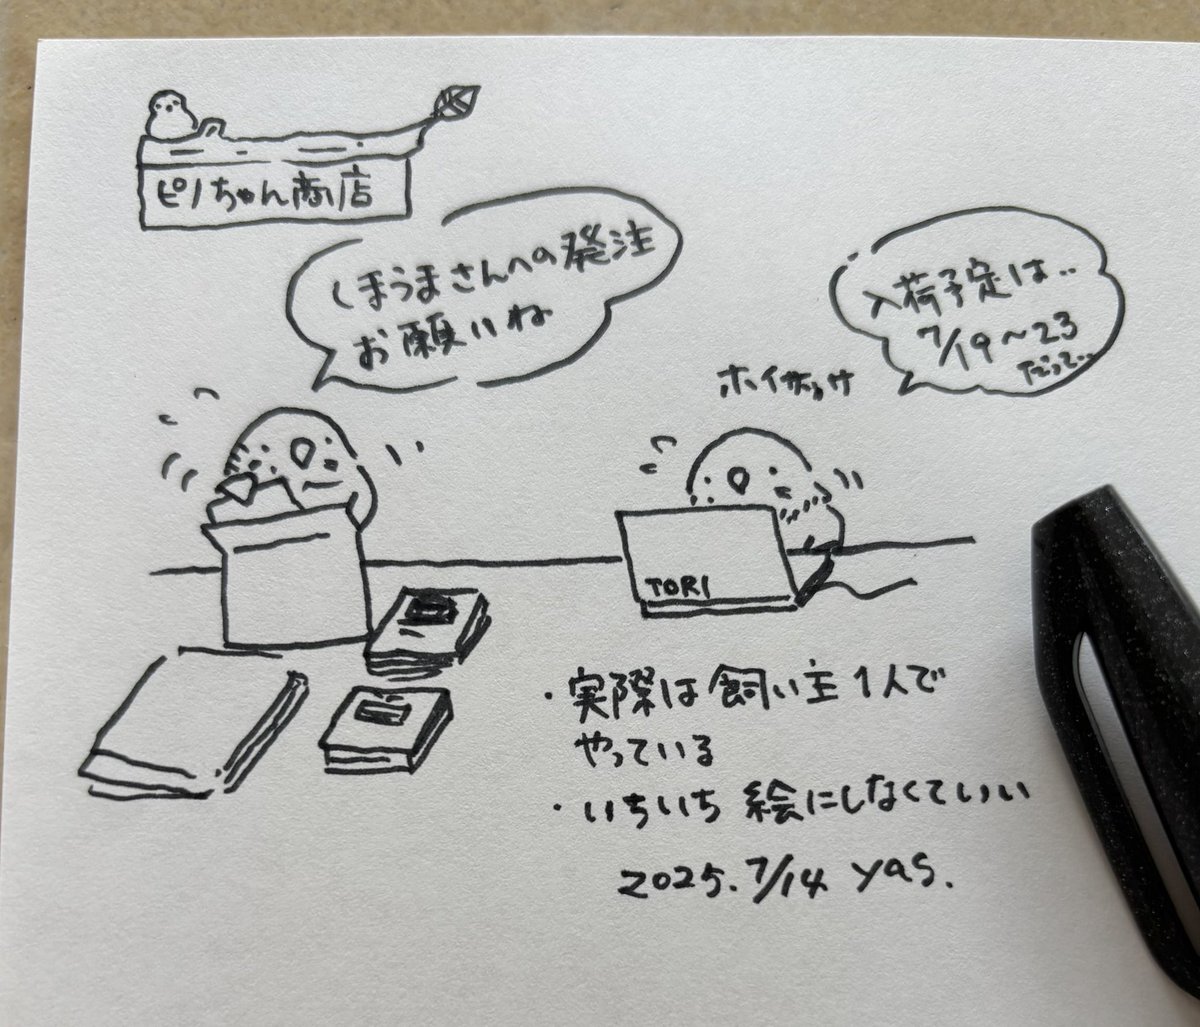 ピノちゃん商店
しまうまさんへの発注
お願いね
入荷予定は‥
7/19〜23
だって‥
ホイサッサ
TORI
・実際は飼い主1人で
やっている
・いちいち絵にしなくていい
2025.7/14 yas.